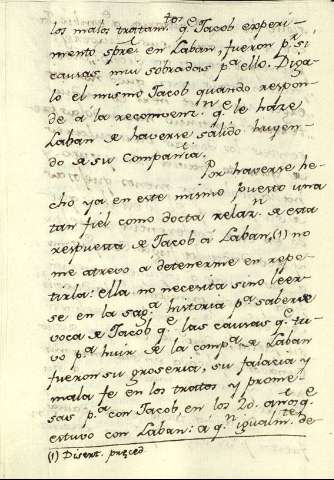 los malos tratam.tos q.e Jacob experi-
mento spre en Laban, fueron p.r si
causas mui sobradas p.a ello. Diga-
lo el mismo Jacob quando respon-
de a la reconven.n q.e le haze
Laban de haverse salido huyen-
do de su Compañia.
Por haverse he-
cho ya en este mismo puesto una
tan fiel como docta relaz.n de esta
respuesta de Jacob á Laban,(1) no
me atrevo á detenerme en repe-
tirla: ella no necesita sino leer-
se en la sag.a historia p.a saberse
voca de Jacob q.e las causas q.e tu-
vo p.a huir de la comp.a de Laban
fueron su groseria, su falacia y
mala fe en los tratos y prome-
sas p.a con Jacob, en los 20. años q.e
estuvo con Laban: á q.n igualm.te de
(1) Disert. preced